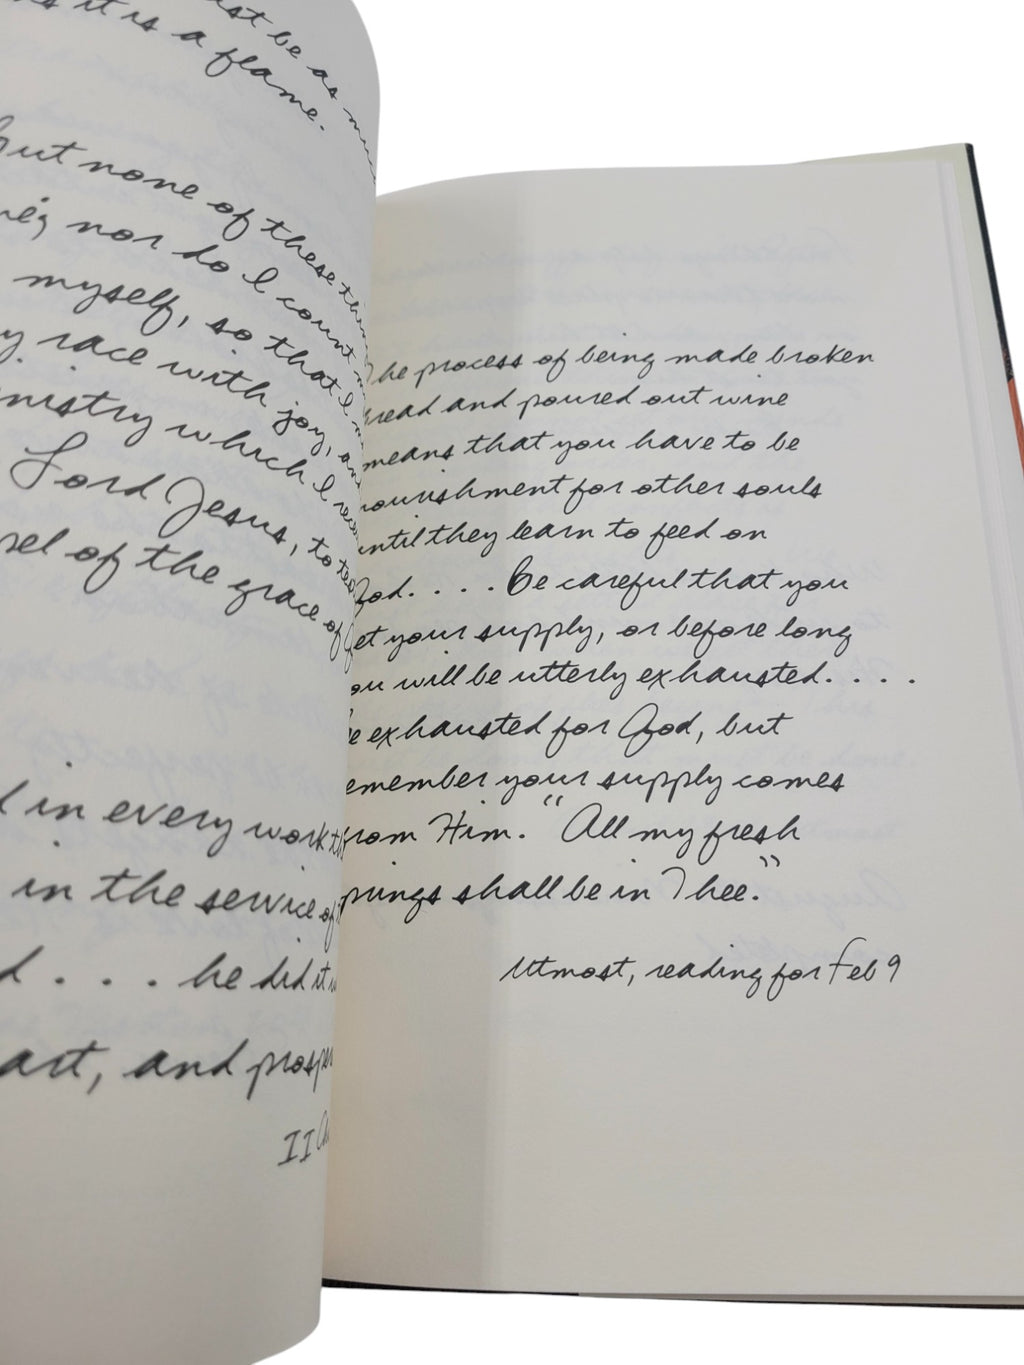 be as
it is a flame.
but none of these
nor do I count
myself, so that I
race with joy,
which I
Lord Jesus, to
of the grace of
in every work
in the service of
. . . he did it
art, and
II
The process of being made broken
bread and poured out wine
means that you have to be
nourishment for other souls
until they learn to feed on
God. . . . Be careful that you
get your supply, or before long
you will be utterly exhausted. . . .
Be exhausted for God, but
remember your supply comes
from Him. "All my fresh
springs shall be in Thee."
Utmost, reading for Feb 9